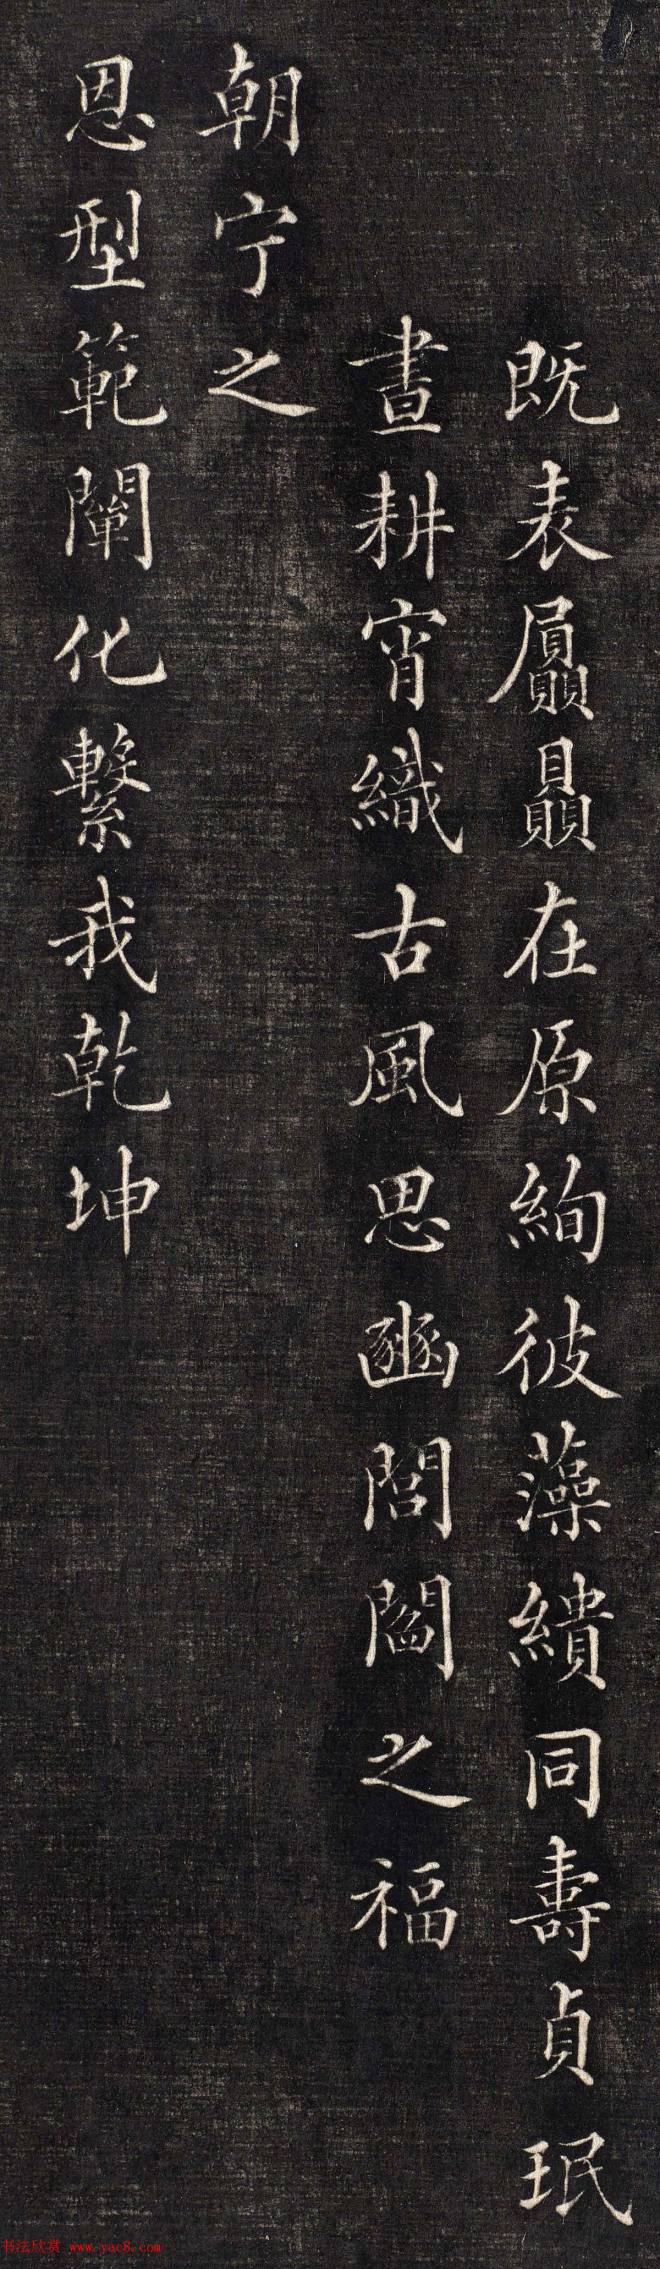 既表屭贔在原絢彼藻繢同壽貞珉
晝耕宵織古風思豳閻閻之福
朝宁之
恩型範闡化繫我乾坤
书法欣赏 www.yac8.com